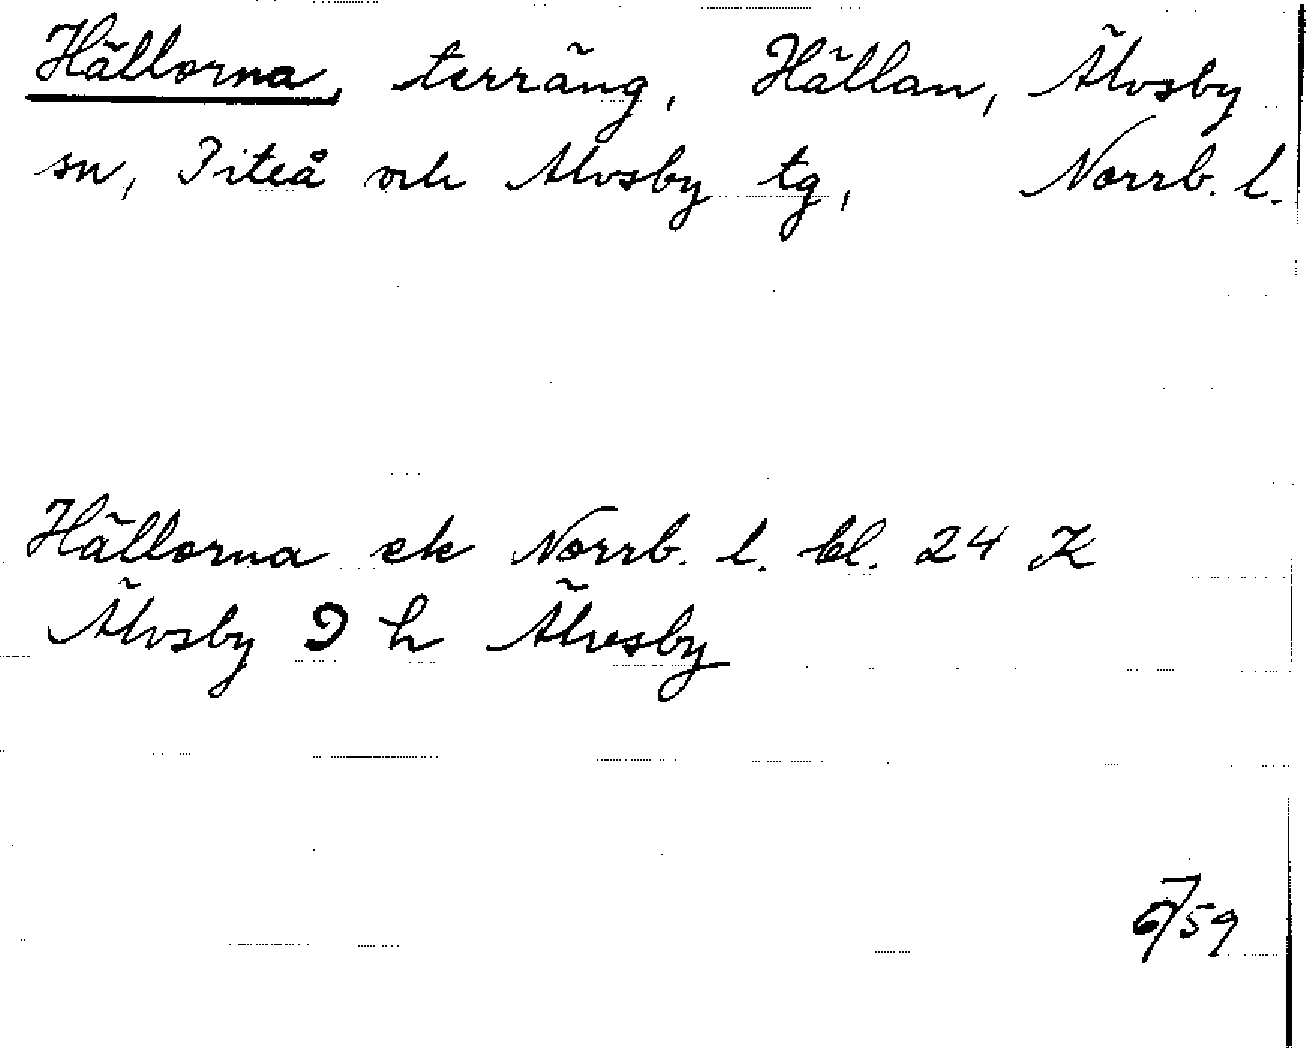 Hällorna, terräng, Hällan, Älvsby
sn, Piteå och Älvsby tg, Norrb. l.
Hällorna ek Norrb. l. bl. 24 K
Älvsby 9 h Älvesby
59